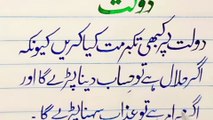 دولت
دولت پر کبھی تکبر مت کیا کریں کیونکہ
اگر حلال ہے تو حساب دینا پڑے گا اور
اگر حرام ہے تو عذاب سہنا پڑے گا۔